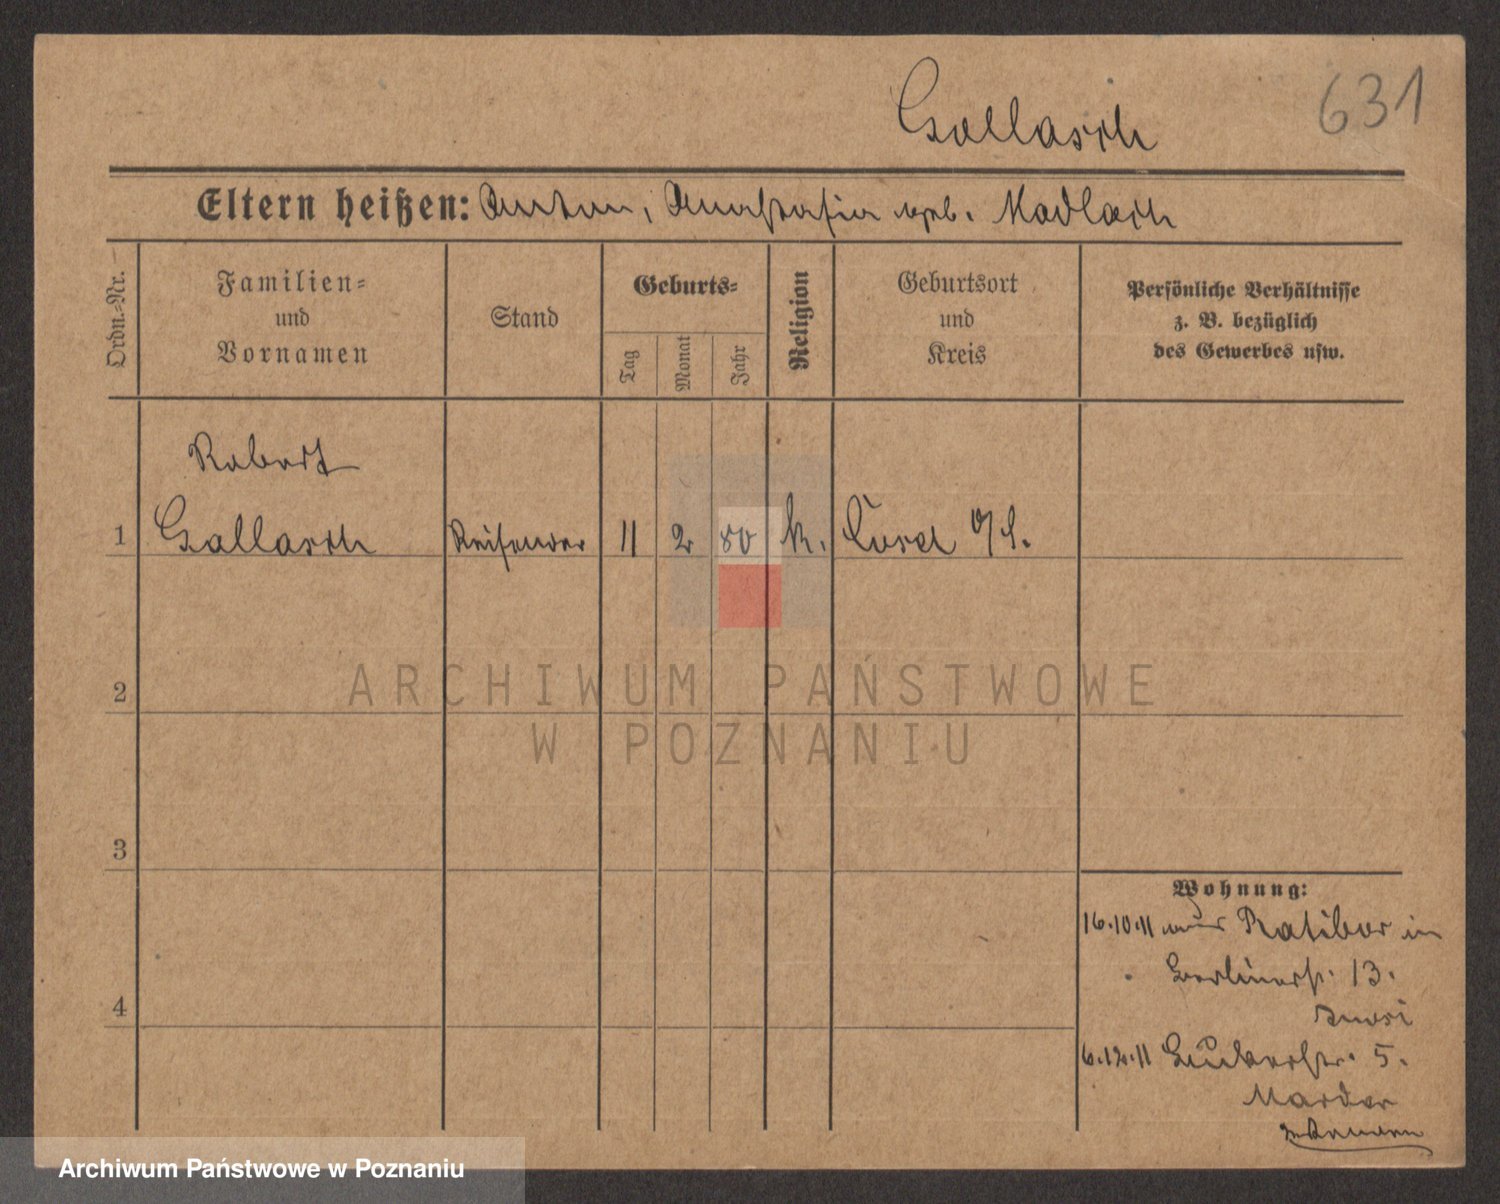 631
Gallasch
Eltern heißen: Anton, Anastasia geb. Madlach
Ordn.-Nr.
Familien-
und
Vornamen
Stand
Geburts-
Tag
Monat
Jahr
Religion
Geburtsort
und
Kreis
Persönliche Verhältnisse
z. B. bezüglich
des Gewerbes usw.
Robert
1 Gallasch Reisender 11 2 80 k. Cosel O/S.
2
ARCHIWUM PAŃSTWOWE
W POZNANIU
3
Wohnung:
16.10.11 aus Ratibor in
Berlinerst. 13.
4
6.12.11 5.
Marder
Archiwum Państwowe w Poznaniu